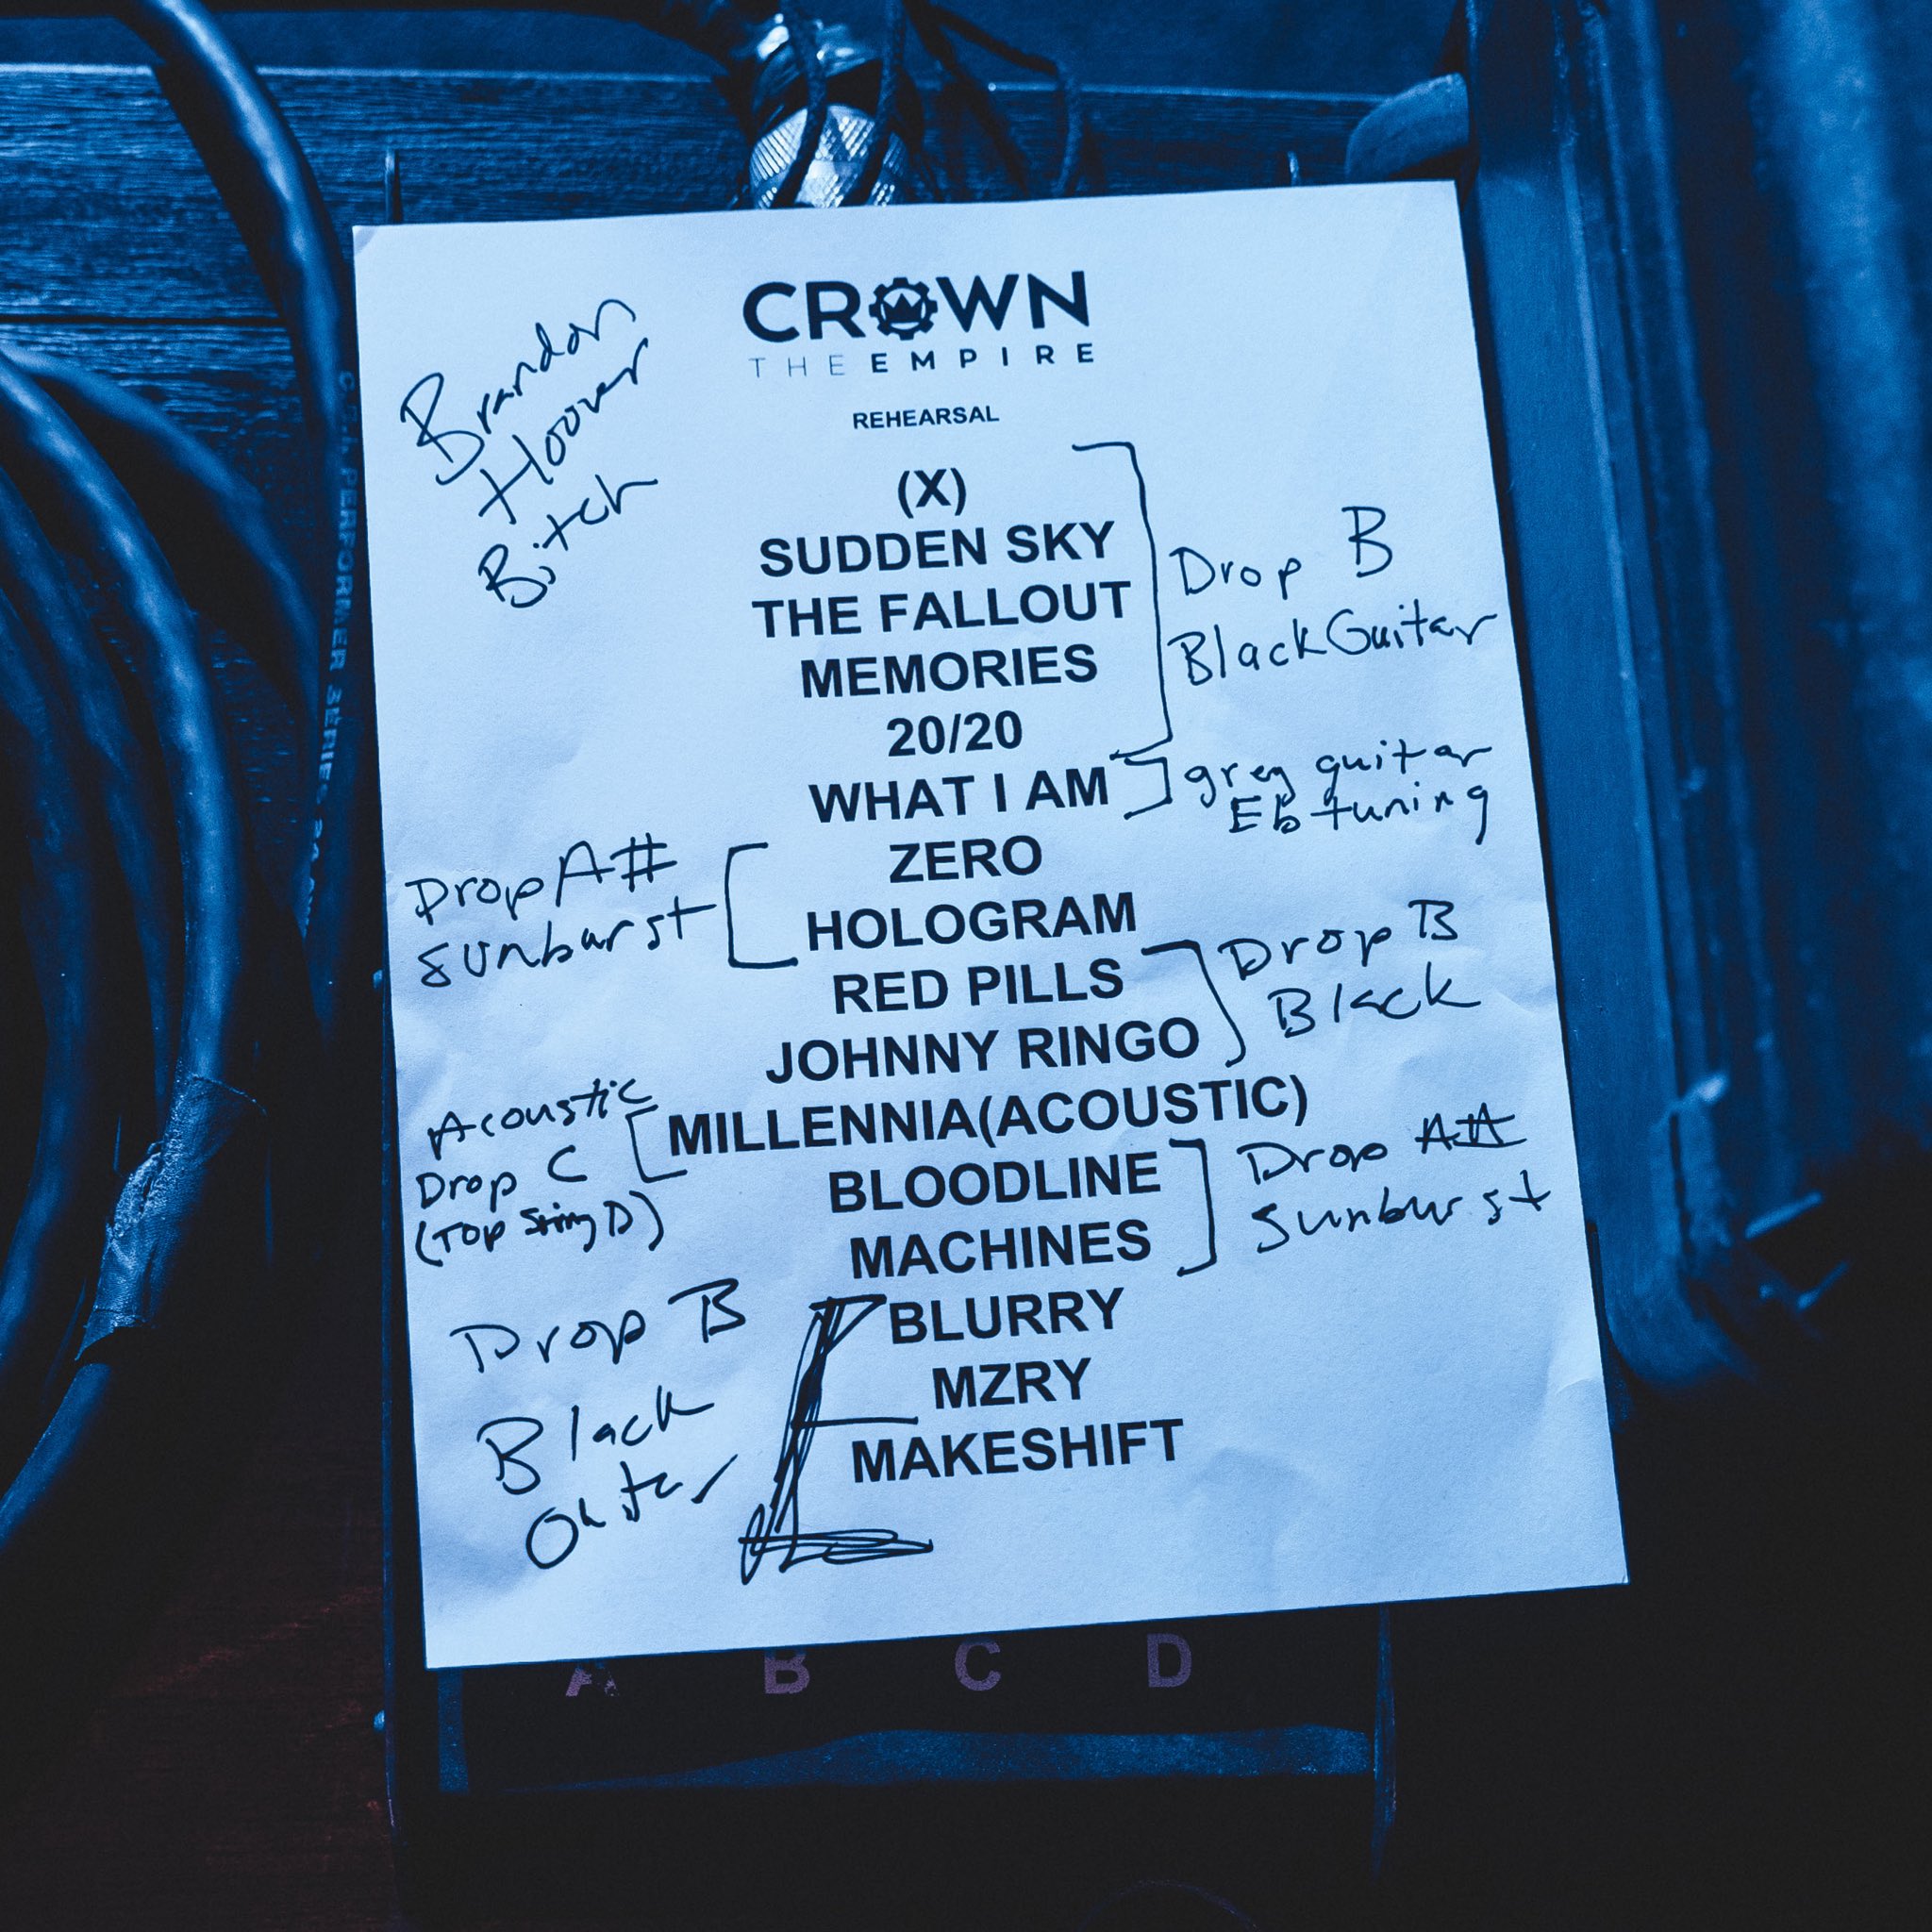 CROWN
THE EMPIRE
REHEARSAL
Brandon
Hoover
Bitch
(X)
SUDDEN SKY
THE FALLOUT
MEMORIES
20/20
Drop B
Black Guitar
WHAT I AM
grey guitar
Eb tuning
ZERO
HOLOGRAM
Drop A#
Sunburst
RED PILLS
JOHNNY RINGO
Drop B
Black
MILLENNIA(ACOUSTIC)
Acoustic
Drop C
(Top String D)
BLOODLINE
MACHINES
Drop A#
Sunburst
BLURRY
MZRY
MAKESHIFT
Drop B
Black
PERFORMER SERIES
A B C D